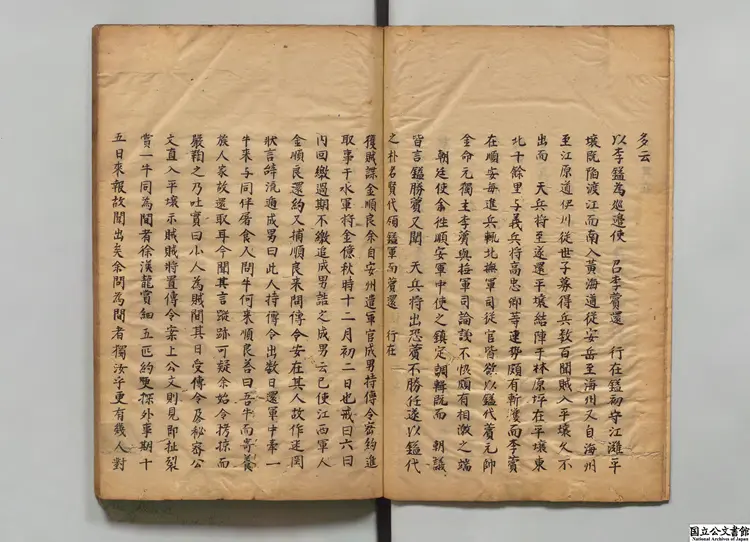 多云
以李鎰為巡邊使 召李薲還 行在鎰初守江灘平
壤既陷渡江而南入黃海道從安岳至海州又自海州
至江原道伊川從世子募得兵数百聞賊入平壤久不
出而 天兵將至遂還平壤結陣于林原坪在平壤東
北十餘里与義兵將高忠卿等連勢頗有斬獲而李薲
在順安每進兵輒北撫軍司從官皆欲以鎰代薲元帥
金命元獨主李薲與撫軍司論議不恢頗有相激之端
朝廷使余往順安軍中使之鎮定調輯既而 朝議
皆言鎰勝薲又聞 天兵將出恐薲不勝任遂以鎰代
之朴名賢代領鎰軍而薲還 行在
獲賊諜金順良余自安州遣軍官成男持傳令密約進
取事于水軍將金億秋時十二月初二日也戒曰六日
內回繳過期不繳追成男詰之成男云已使江西軍人
金順良還約又捕順良來問傳令安在其人故作迷罔
狀言辭流遁成男曰此人持傳令出數日還軍中牽一
牛来与同伴屠食人問牛何来順良答曰吾牛而寄養
族人家故還取耳今聞其言蹤跡可疑余始令拷掠而
嚴鞫之乃吐實曰小人為賊間其日受傳令及秘密公
文直入平壤示賊賊將置傳令案上公文則見即扯裂
賞一牛同為間者徐漢龍賞紬五匹約更探外事期十
五日来報故聞出矣余問為間者獨汝乎更有幾人對
国立公文書館
National Archives of Japan